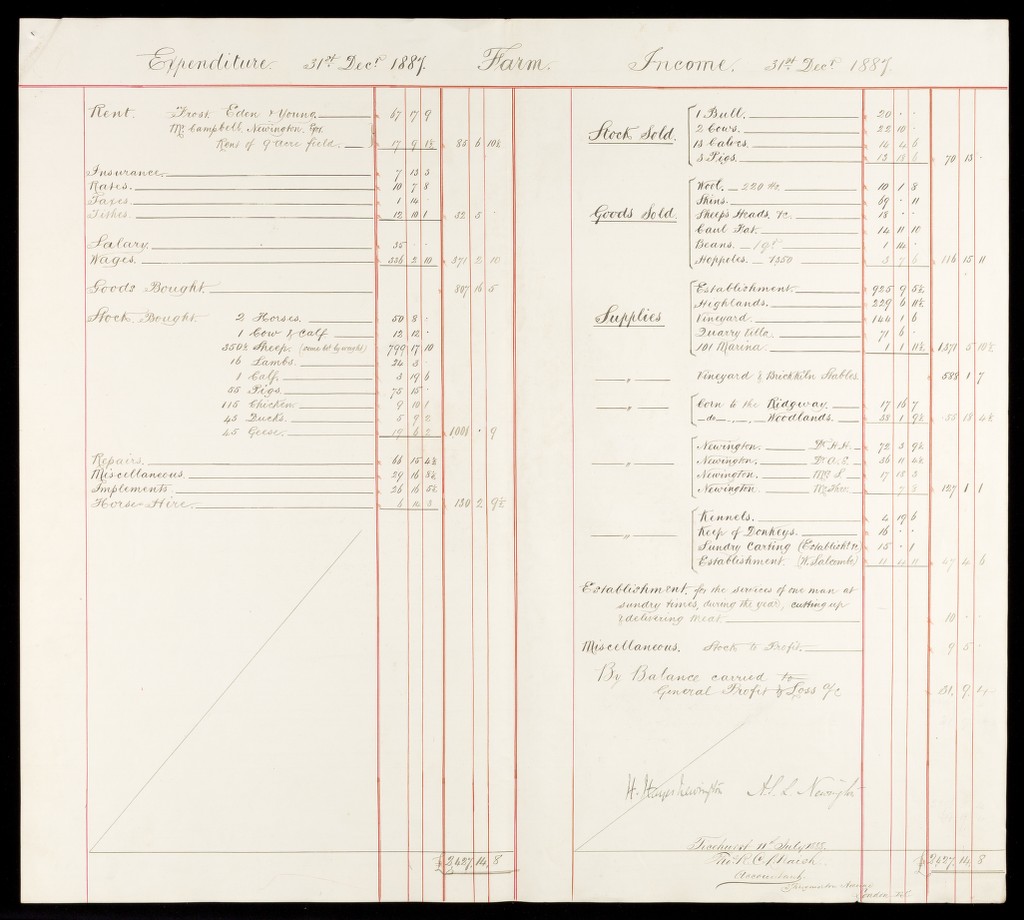 Expenditure. 31st Decr 1887. Farm. Income. 31st Decr 1887.
Rent. Frost, Eden & Young 67 17 9
Mr Campbell, Newington, Esq.
Rent of 9 acre field. 17 9 1½ 85 6 10½
Insurance. 7 13 3
Rates. 10 7 8
Taxes. 1 14 .
Tithes. 12 10 1 32 5 .
Salary. 35 . .
Wages. 336 2 10 371 2 10
Goods Bought. 807 16 5
Stock Bought 2 Horses. 50 8 .
1 Cow & Calf 12 12 .
350½ Sheep. (some lot by weight) 799 17 10
16 Lambs. 24 3 .
1 Calf. 3 19 6
55 Pigs. 75 15 .
115 Chicken 9 10 1
43 Ducks. 5 9 2
45 Geese. 19 6 2 1001 . 9
Repairs. 15 4½
Miscellaneous. 29 16 8½
Implements. 26 16 5½
Horse Hire. 6 3 130 2 9½
£2,427 14 8
Stock Sold. 1 Bull. 20 . .
2 Cows. 22 10 .
13 Calves. 14 4 6
3 Pigs. 13 18 6 70 13 .
Goods Sold. Wool. 220 lbs. 10 1 8
Skins. 69 . 11
Sheep's Heads, &c. 18 . .
Caul Fat. 14 11 10
Beans. 19 1 14 .
Hoppoles. 1350 3 7 6 116 15 11
Supplies Establishment. 925 9 5½
Highlands. 229 6 11½
Vineyard. 144 1 6
Quarry Villa. 71 6 .
101 Marina. 1 1 11½ 1371 5 10½
" Vineyard & Brickkiln Stables 588 1 7
" Corn to the Ridgway. 17 16 7
" do " " Woodlands. 38 1 9½ 55 18 4½
" Newington. Dr H.H. 72 3 9½
Newington. Dr A.S. 36 11 4½
Newington. 17 18 3
Newington. 7 8 127 1 1
" Kennels. 4 19 6
Keep of Donkeys. 16 . .
Sundry Carting (Establisht &c) 15 . 1
Establishment. (W. Salcombe) 11 4 11 47 4 6
Establishment, for the services of one man at
sundry times, during the year, cutting up
& delivering meat 10 . .
Miscellaneous. Stock to Profit. 9 5 .
By Balance carried to
General Profit & Loss a/c 31. 9. 4
H. Hayes Newington A.S.L. Newington
Ticehurst 11th July 1888.
Accountant.
London
£2427 14 8